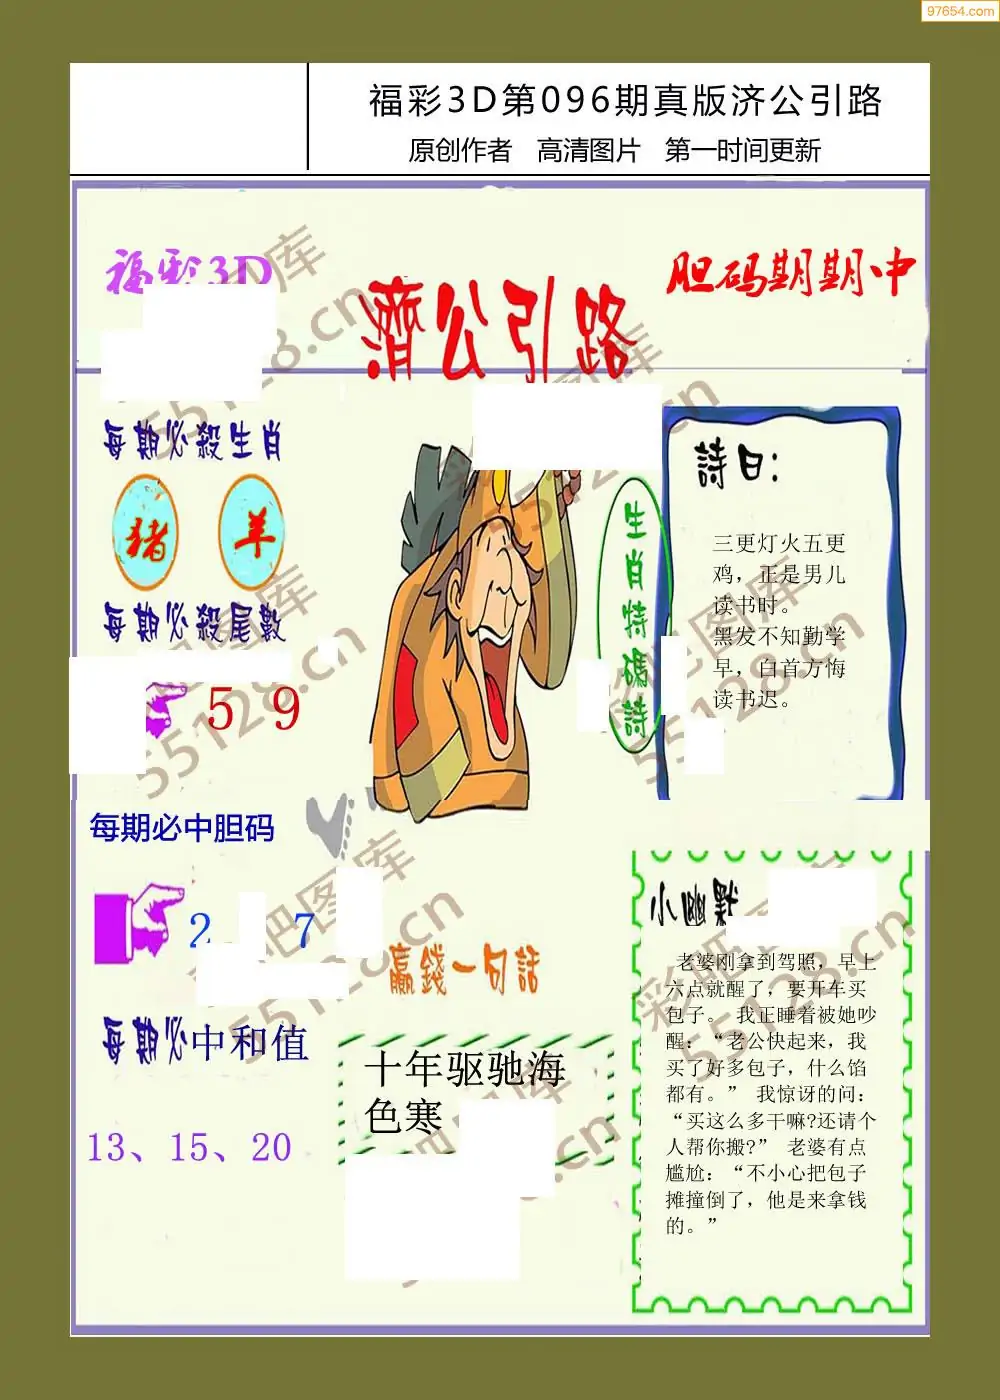 97654.com
福彩3D第096期真版济公引路
原创作者 高清图片 第一时间更新
福彩3D
濟公引路
胆码期期中
每期必殺生肖
猪 羊
每期必殺尾數
5 9
生肖特碼詩
詩曰:
三更灯火五更
鸡，正是男儿
读书时。
黑发不知勤学
早，白首方悔
读书迟。
每期必中胆码
2 7
每期必中和值
13、15、20
贏錢一句話
十年驱驰海
色寒
小幽默
老婆刚拿到驾照，早上
六点就醒了，要开车买
包子。 我正睡着被她吵
醒：“老公快起来，我
买了好多包子，什么馅
都有。” 我惊讶的问：
“买这么多干嘛?还请个
人帮你搬?” 老婆有点
尴尬：“不小心把包子
摊撞倒了，他是来拿钱
的。”
彩吧图库
55128.cn